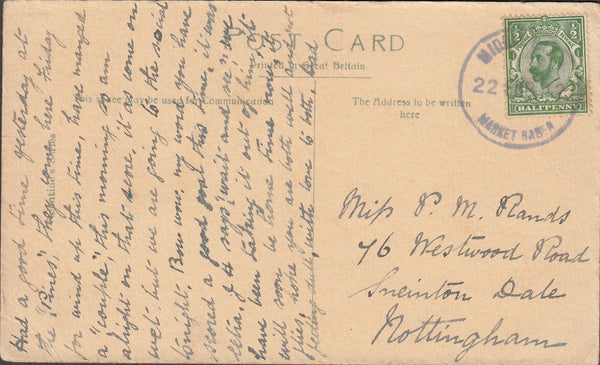 POST CARD
Printed in Great Britain
This space may be used for Communication
The Address to be written
here
½ ½
HALFPENNY
22
MARKET RASEN
Had a good time yesterday at
the "Pines," they come here Friday
for wind up this time, have managed
a "couple" this morning so am
alright on that score, it has come on
wet but we are going to the social
tonight. Bow wow, my word you have
scored a good goal this time, it was
extra, J. H. says "wait and see", we
have been taking it out of him, it
will soon be home time now, time
flies, hope you are both well and not
feeling dull, with love to both, Lord
Miss P. M. Rands
76 Westwood Road
Sneinton Dale
Nottingham